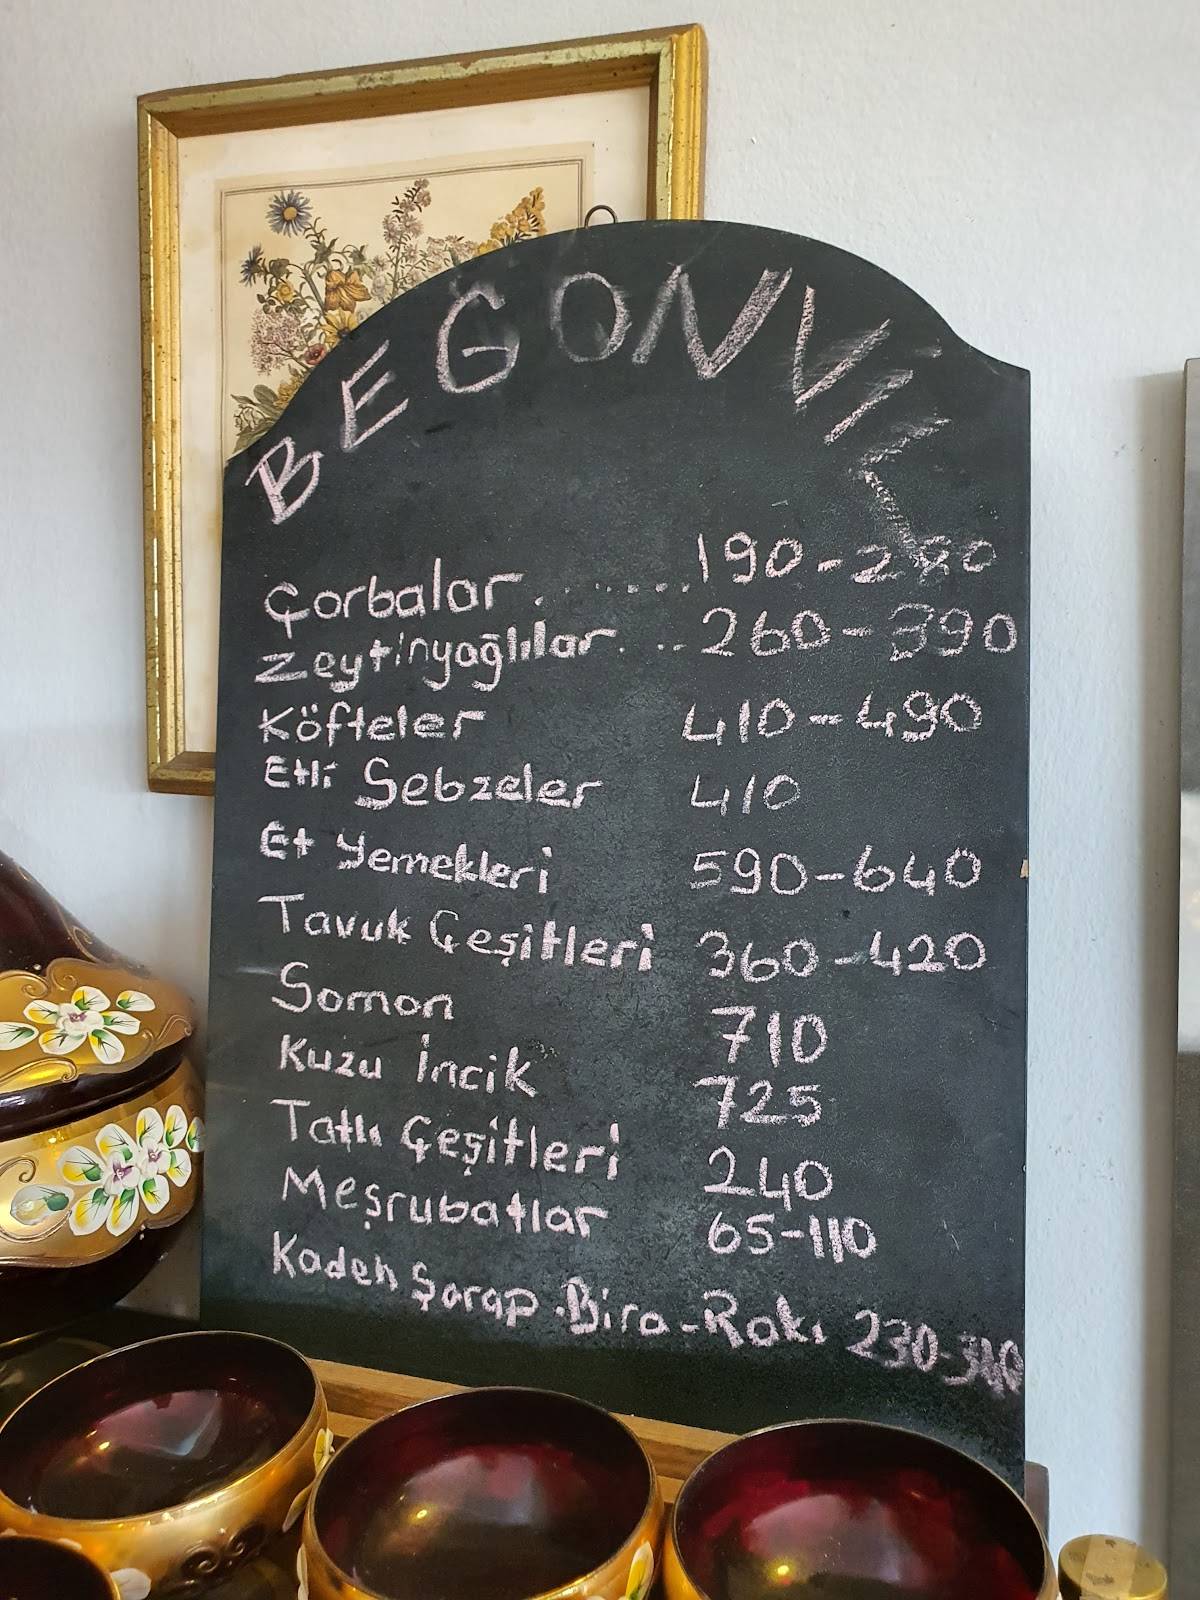 BEGONVİL
Çorbalar ......190-280
Zeytinyağlılar. ..260-390
Köfteler 410-490
Etli Sebzeler 410
Et Yemekleri 590-640
Tavuk Çeşitleri 360-420
Somon 710
Kuzu İncik 725
Tatlı Çeşitleri 240
Meşrubatlar 65-110
Kadeh Şarap.Bira-Rakı 230-